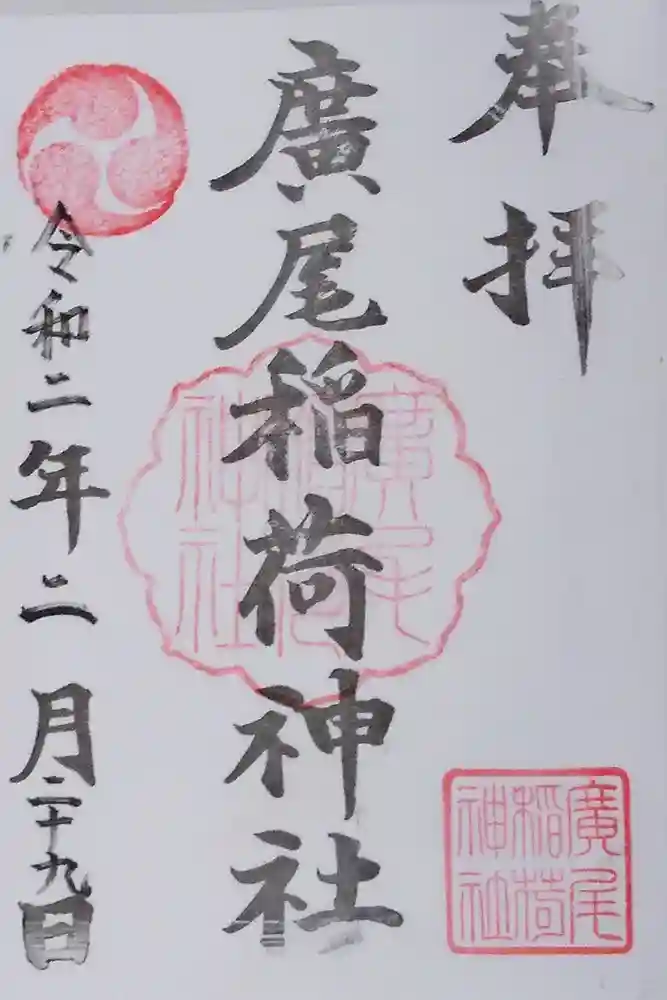 奉拝
廣尾稲荷神社
廣尾
稲荷
神社
令和二年二月二十九日
廣尾
稲荷
神社